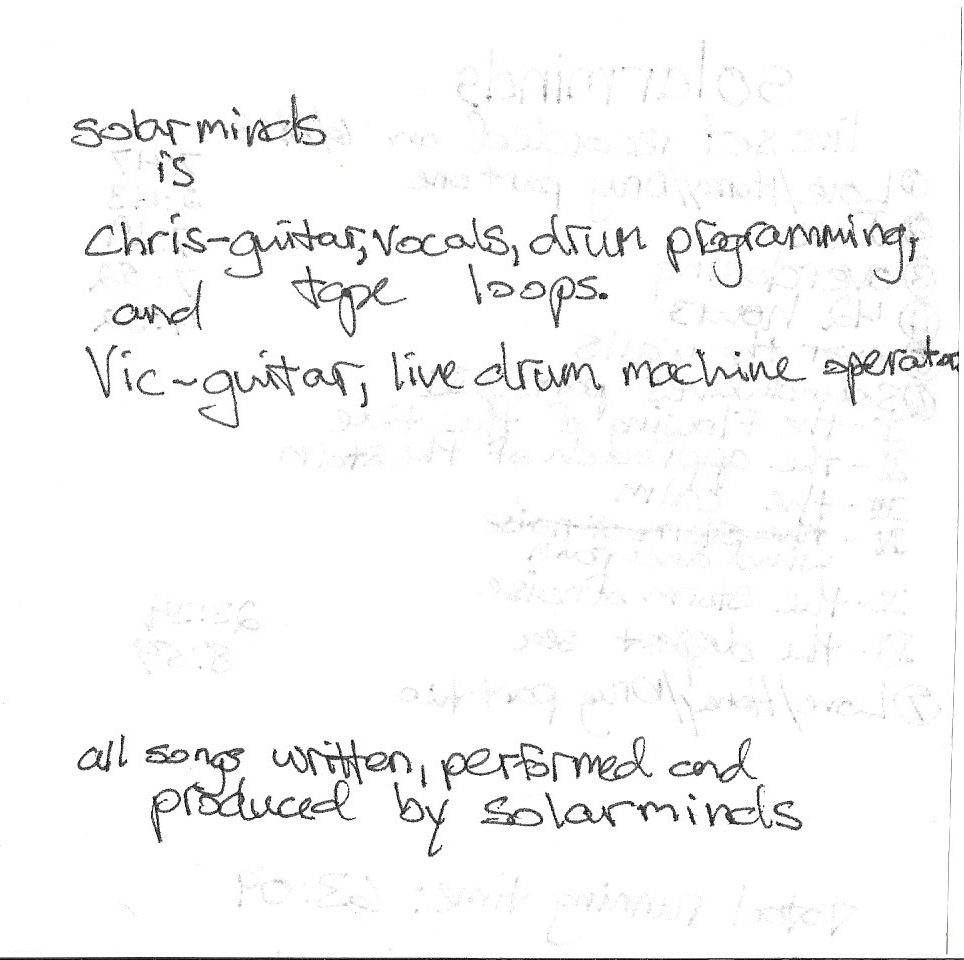 solarminds
is
Chris-guitar, vocals, drum programming,
and tape loops.
Vic-guitar, live drum machine operator
all songs written, performed and
produced by solarminds